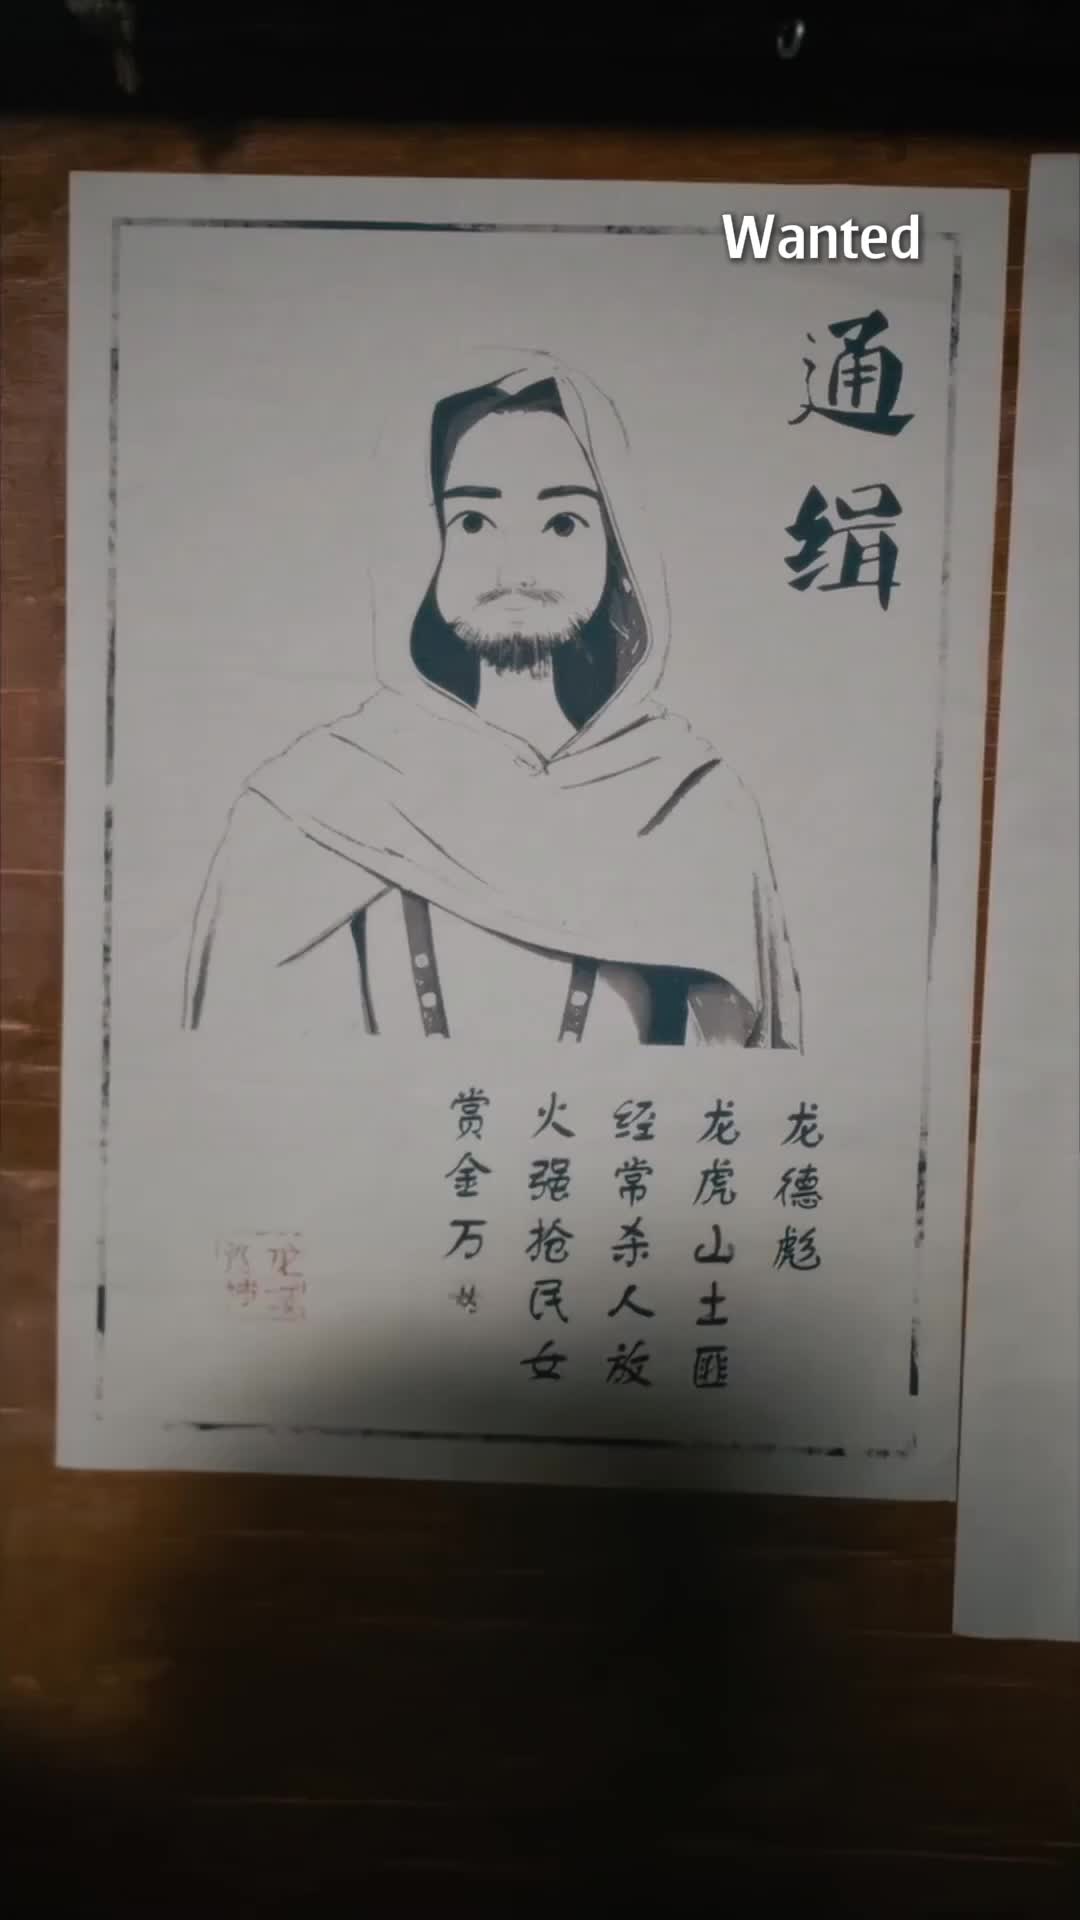 Wanted
通缉
龙德彪
龙虎山土匪
经常杀人放
火强抢民女
赏金万